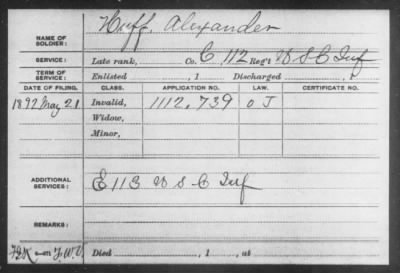 NAME OF SOLDIER: Huff, Alexander
SERVICE: Late rank, Co. C, 112 Reg't U S C Inf
TERM OF SERVICE: Enlisted , 1 Discharged , 1
DATE OF FILING. CLASS. APPLICATION NO. LAW. CERTIFICATE NO.
1892 May 21 Invalid, 1112,739 O J
Widow,
Minor,
ADDITIONAL SERVICES: E 113 U S C Inf
REMARKS:
Died , 1 , at